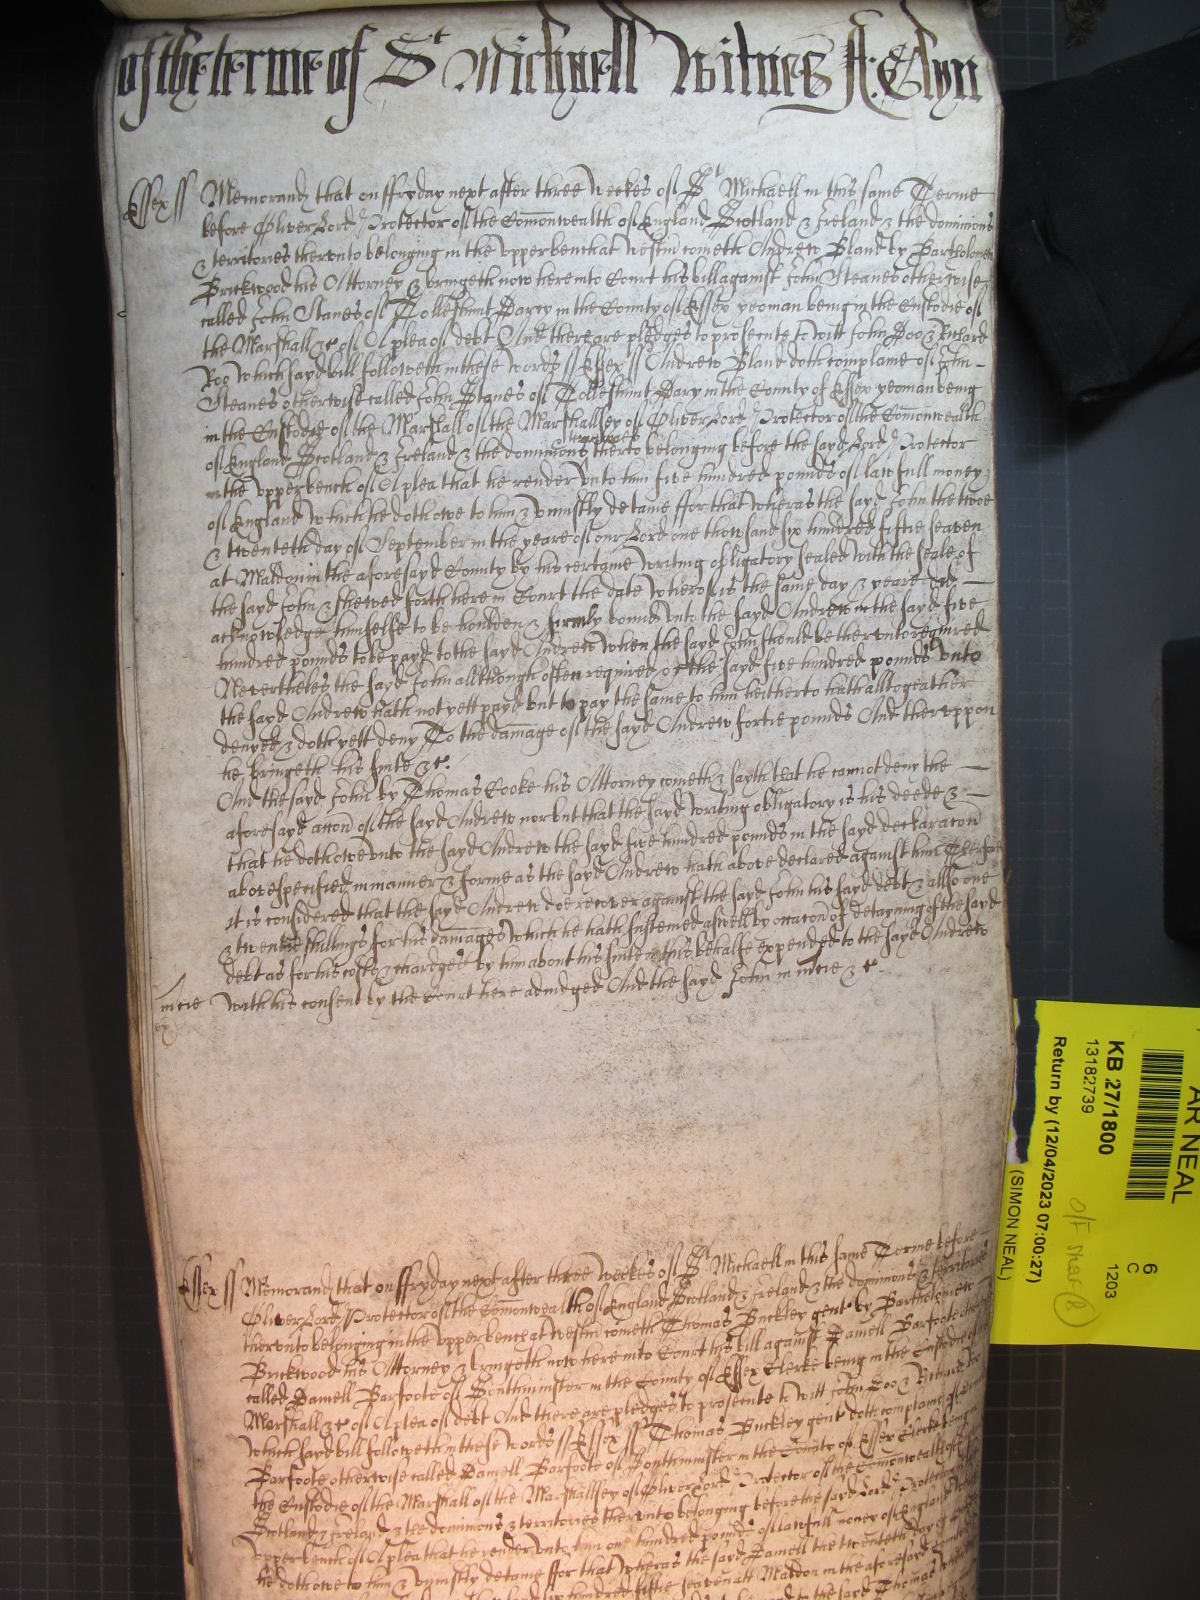 of the terme of St Michaell Witnes R: Aslyn
Essex ss Memorand that on ffryday next after three weekes of St Michaell in this same Terme
before Oliver Lord Protector of the Comonwealth of England Scotland & Ireland & the dominions
& territories therunto belonging in the upper bench at Westm cometh Andrew Bland by Bartholomew
Brickwood his Attorney & bringeth now here into Court his bill against John Steanes otherwise
called John Stanes of Tolleshunt Darcy in the County of Essex yeoman being in the Custodie of
the Marshall &c of A plea of debt And there are pledges to prosecute to witt John Doo & Richard
Roo which sayd bill followeth in these words ss Essex ss Andrew Bland doth complaine of John
Steanes otherwise called John Stanes of Tolleshunt Darcy in the County of Essex yeoman being
in the Custodie of the Marshall of the Marshallsey of Oliver Lord Protector of the Comonwealth
of England Scotland & Ireland & the dominions & territories therto belonging before the sayd Lord Protector
in the upper bench of A plea that he render unto him five hundred pounds of lawfull money
of England which he doth owe to him & uniustly detaine ffor that wheras the sayd John the twoe
& twenteth day of September in the yeare of our Lord one thowsand six hundred fiftie seaven
at Maldon in the aforesayd County by his certaine writing obligatory sealed with the seale of
the sayd John & shewed forth here in Court the date wherof is the same day & yeare did
acknowledge himselfe to be houlden & firmly bound unto the sayd Andrew in the sayd five
hundred pounds to be payd to the sayd Andrew when the sayd John should be therunto required
Nevertheles the sayd John allthough often required of the sayd five hundred pounds unto
the sayd Andrew hath not yett payd but to pay the same to him heitherto hath alltogeather
denyed & doth yett deny To the damage of the sayd Andrew fortie pounds And theruppon
he bringeth his suite &c.
And the sayd John by Thomas Cooke his Attorney cometh & sayth that he cannot deny the
aforesayd accon of the sayd Andrew nor but that the sayd writing obligatory is his deede &
that he doth owe unto the sayd Andrew the sayd five hundred pounds in the sayd declaracon
above specified in manner & forme as the sayd Andrew hath above declared against him Therfore
it is considered that the sayd Andrew doe recover against the sayd John his sayd debt & allso one
& twentie shillings for his damages which he hath susteined aswell by occacon of detayning of the sayd
debt as for his costs & chardges by him about his suite in this behalfe expended to the sayd Andrew
mcie with his consent by the Court here adiudged And the sayd John in mcie &c.
Essex ss Memorand that on ffryday next after three weekes of St Michaell in this same Terme before
Oliver Lord Protector of the Comonwealth of England Scotland & Ireland & the dominions & territories
therunto belonging in the upper bench at Westm cometh Thomas Buckley gent by Bartholomew
Brickwood his Attorney & bringeth now here into Court his bill against Daniell Barfoote
called Daniell Barfoote of Southminster in the County of Essex Clerke being in the Custodie of
Marshall &c of A plea of debt And there are pledges to prosecute to witt John Doo & Richard Roo
which sayd bill followeth in these words ss Essex ss Thomas Buckley gent doth complaine of
Barfoote otherwise called Daniell Barfoote of Southminster in the County of Essex Clerke being in
the Custodie of the Marshall of the Marshallsey of Oliver Lord Protector of the Comonwealth of
Scotland & Ireland & the dominions & territories therunto belonging before the sayd Lord Protector
upper bench of A plea that he render unto him one hundred pounds of lawfull money of England
he doth owe to him & uniustly detaine ffor that wheras the sayd Daniell the twenteth day of
hundred fiftie seaven att Maldon in the aforesayd County
to the sayd Thomas
AR NEAL
KB 27/1800
13182739
Return by (12/04/2023 07:00:27)
(SIMON NEAL)
6
C
1203